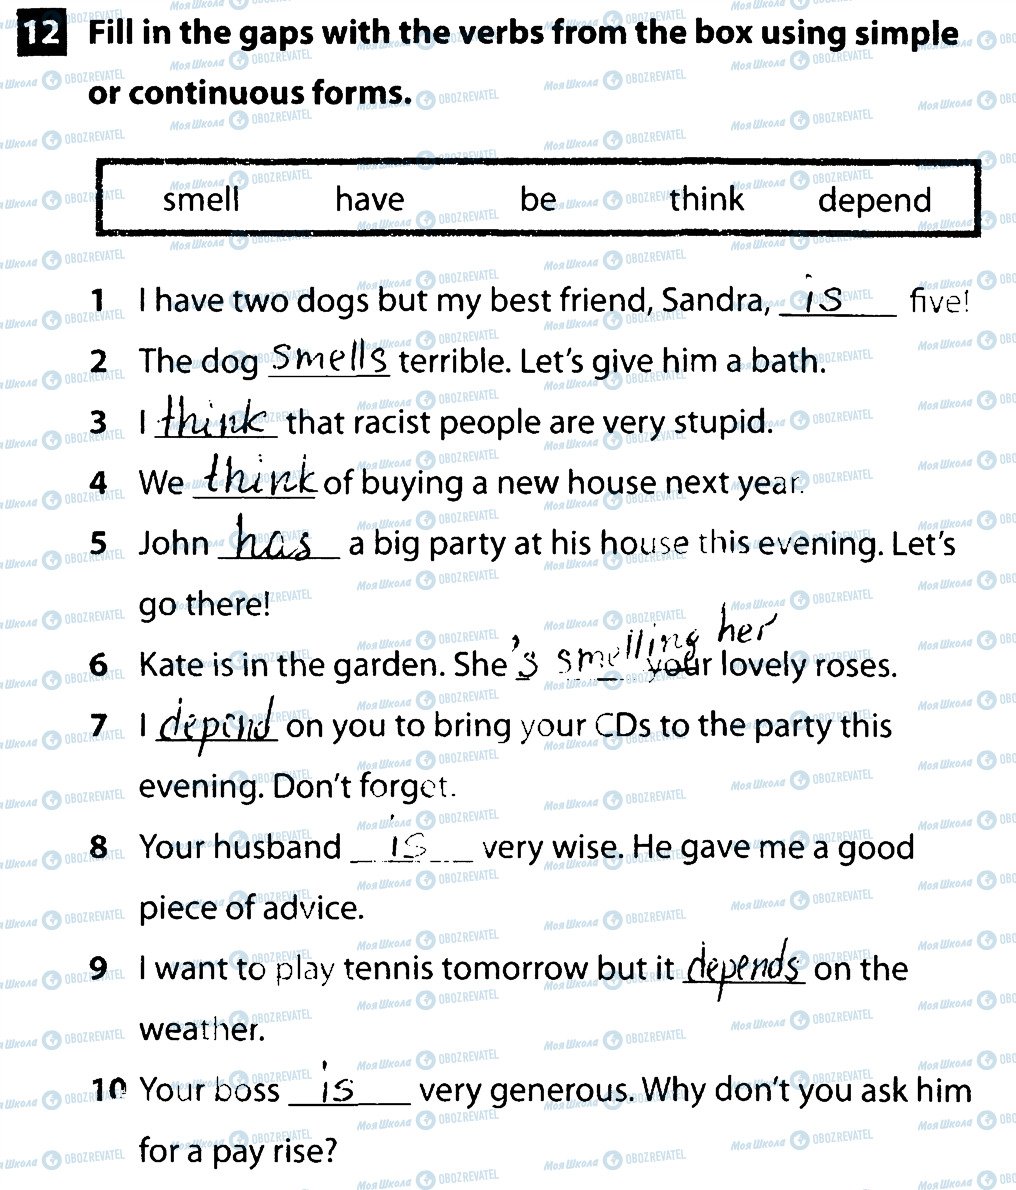 12 Fill in the gaps with the verbs from the box using simple
or continuous forms.
smell have be think depend
1 I have two dogs but my best friend, Sandra, is five!
2 The dog smells terrible. Let's give him a bath.
3 I think that racist people are very stupid.
4 We think of buying a new house next year.
5 John has a big party at his house this evening. Let's
go there!
her
6 Kate is in the garden. She's smelling your lovely roses.
7 I depend on you to bring your CDs to the party this
evening. Don't forget.
8 Your husband is very wise. He gave me a good
piece of advice.
9 I want to play tennis tomorrow but it depends on the
weather.
10 Your boss is very generous. Why don't you ask him
for a pay rise?
МояШкола OBOZREVATEL